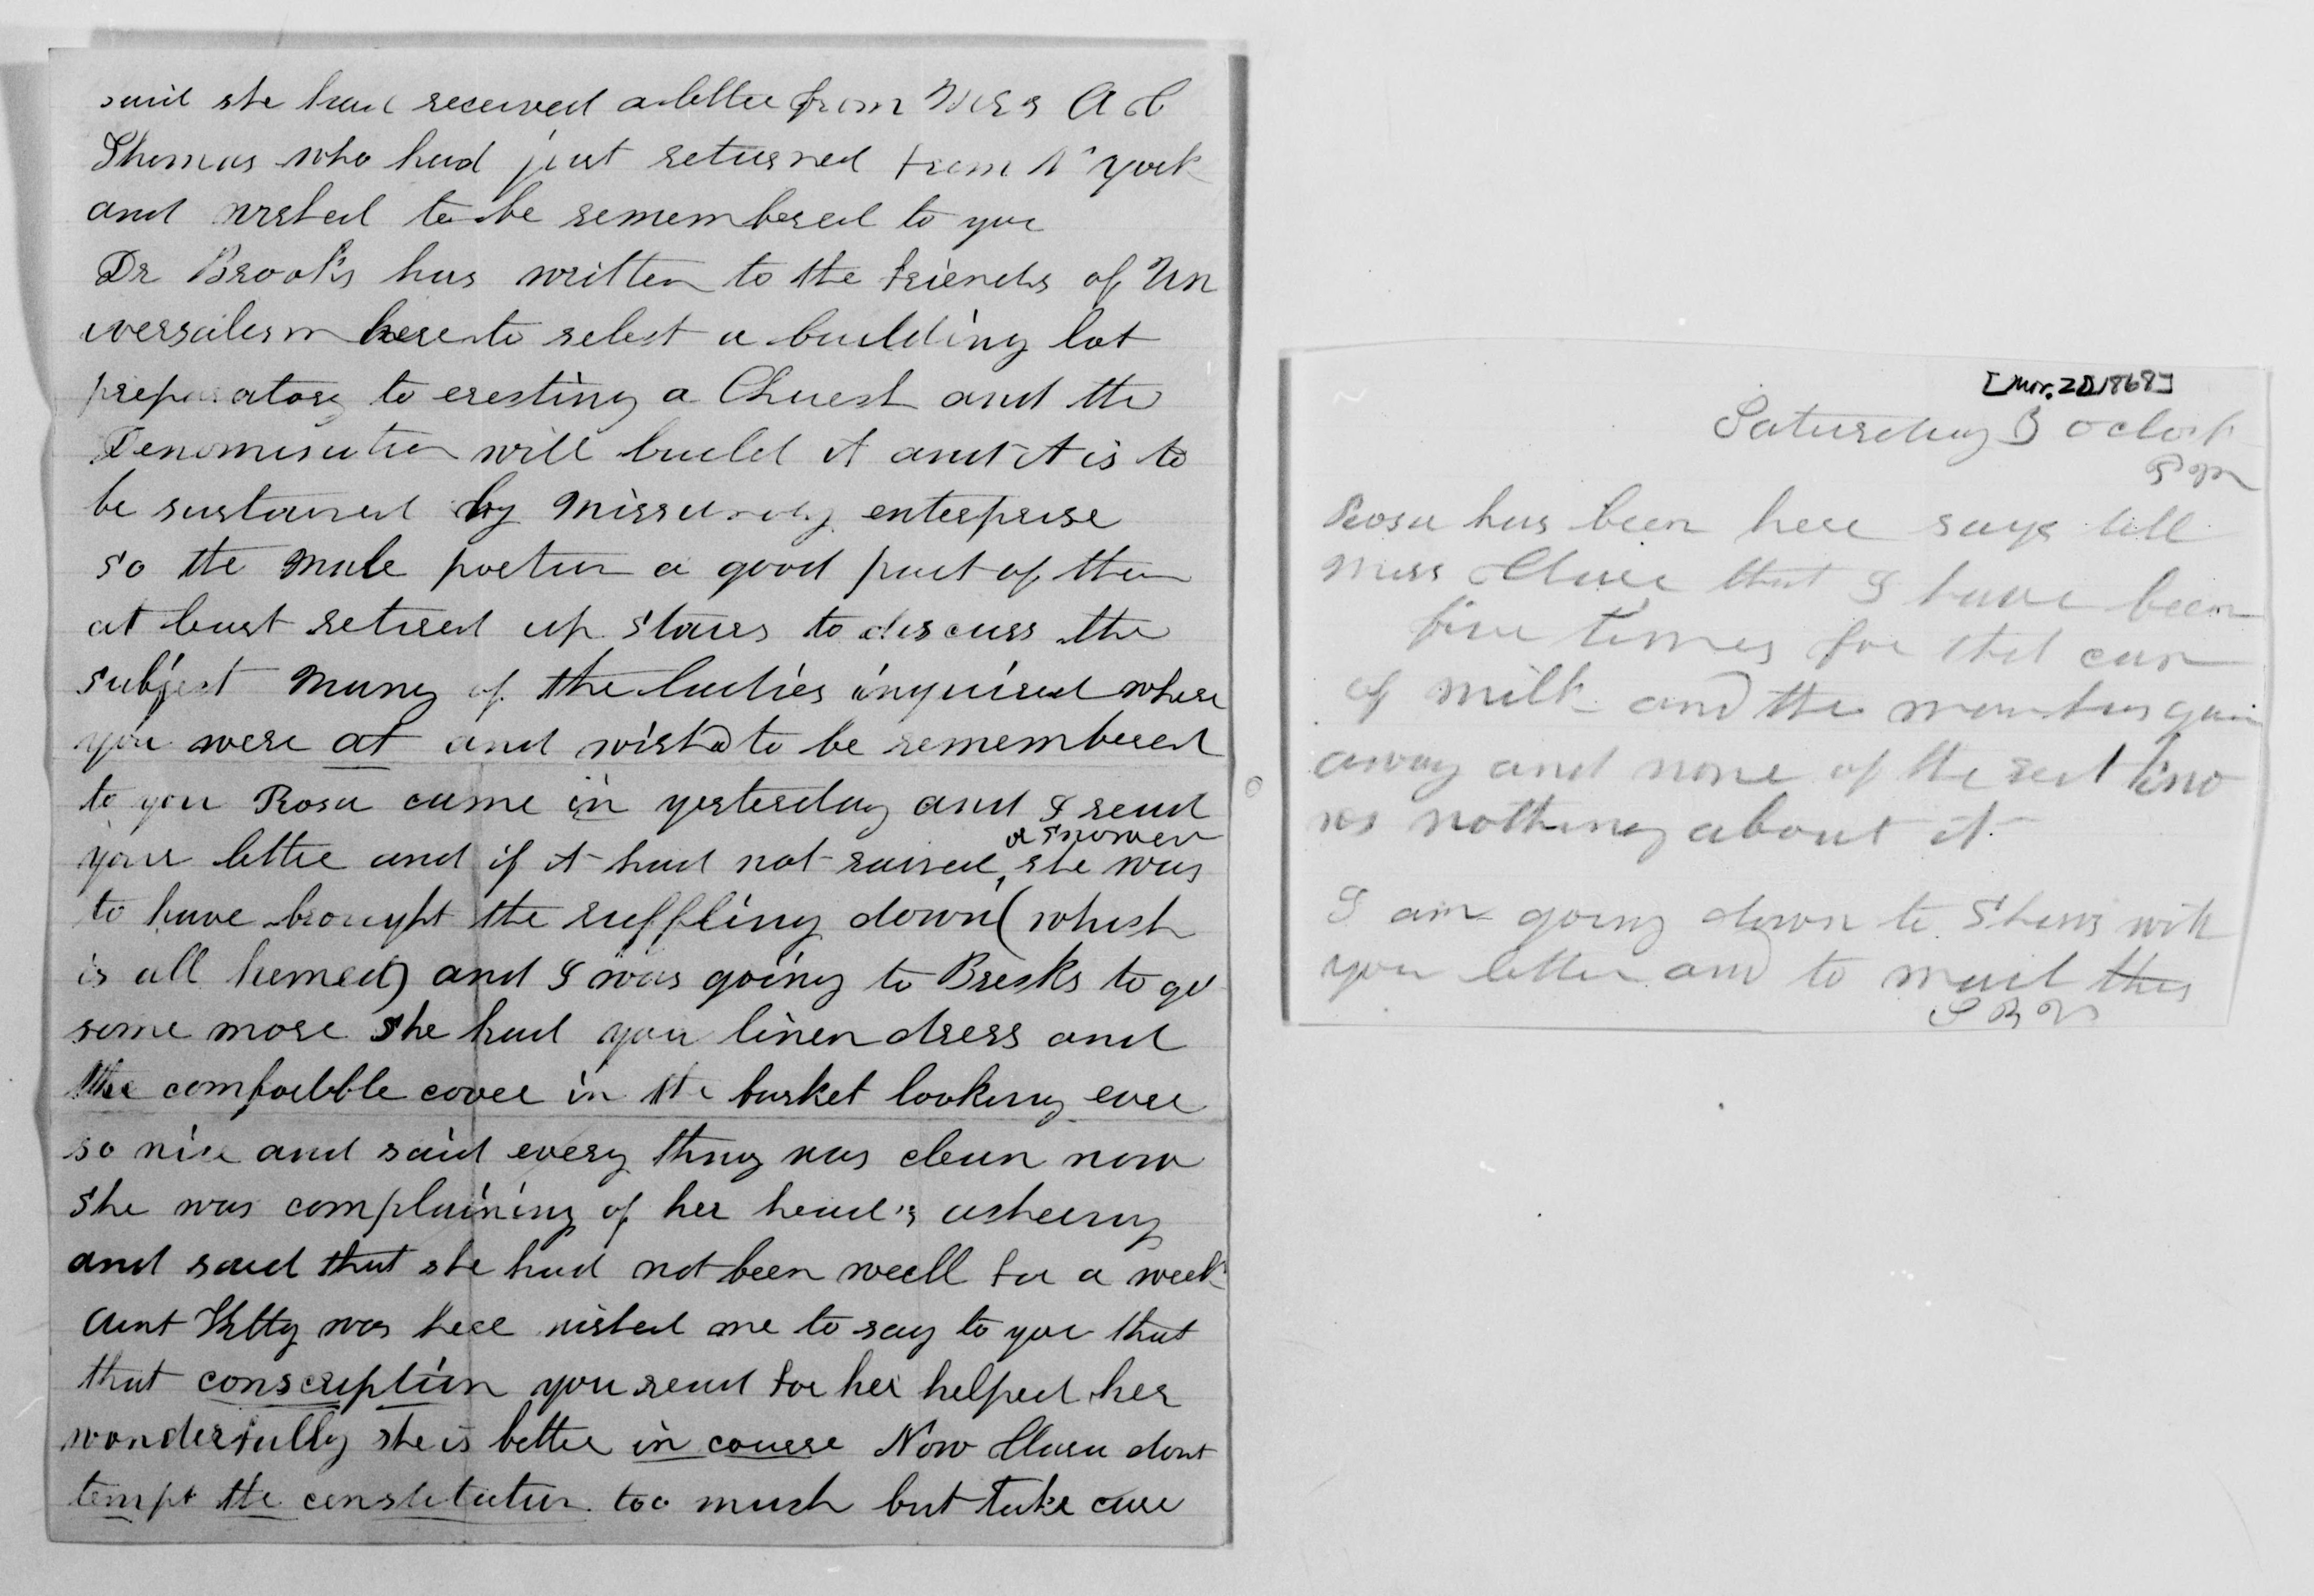 said she had received a letter from Miss A C
Thomas who had just returned from N York
and wished to be remembered to you
Dr Brooks has written to the friends of Un
iversalism here to select a building lot
preparatory to erecting a Church and the
Denomination will build it and it is to
be sustained by Missionary enterprise
so the male portion a good part of them
at least retired up stairs to discuss the
subject Many of the ladies inquired where
you were at and wishd to be remembered
to you Rosa came in yesterday and I read
a shower
your letter and if it had not rained, she was
to have brought the ruffling down (which
is all hemed) and I was going to Brecks to get
some more She had your linen dress and
the comfortble cover in the basket looking ever
so nice and said every thing was clean now
She was complaining of her head's acheing
and said that she had not been weell for a week
Aunt Kitty was here wished me to say to you that
that conscription you send for her helped her
wonderfully she is better in course Now Clara dont
tempt the constitution too much but take care
[Mar. 21 1868]
Saturday 3 oclock
P m
Rosa has been here says tell
Miss Clara that I have been
five times for that can
of milk and the man has gone
away and none of the rest kno
ws nothing about it
I am going down to Shaws with
your letter and to mail this